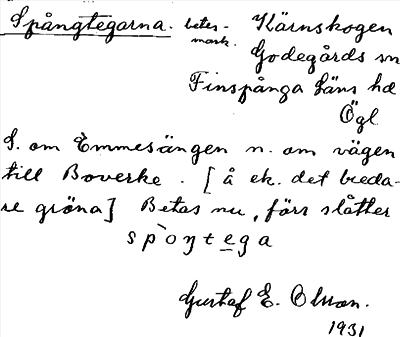 Spångtegarna. betes- Kärnskogen
mark. Godegårds sn
Finspånga läns hd
Ögl
S. om Emmesängen n. om vägen
till Boverke. [å ek. det breda-
re gröna] Betas nu, förr slåtter
spòŋtega
Gustaf E. Olsson.
1931